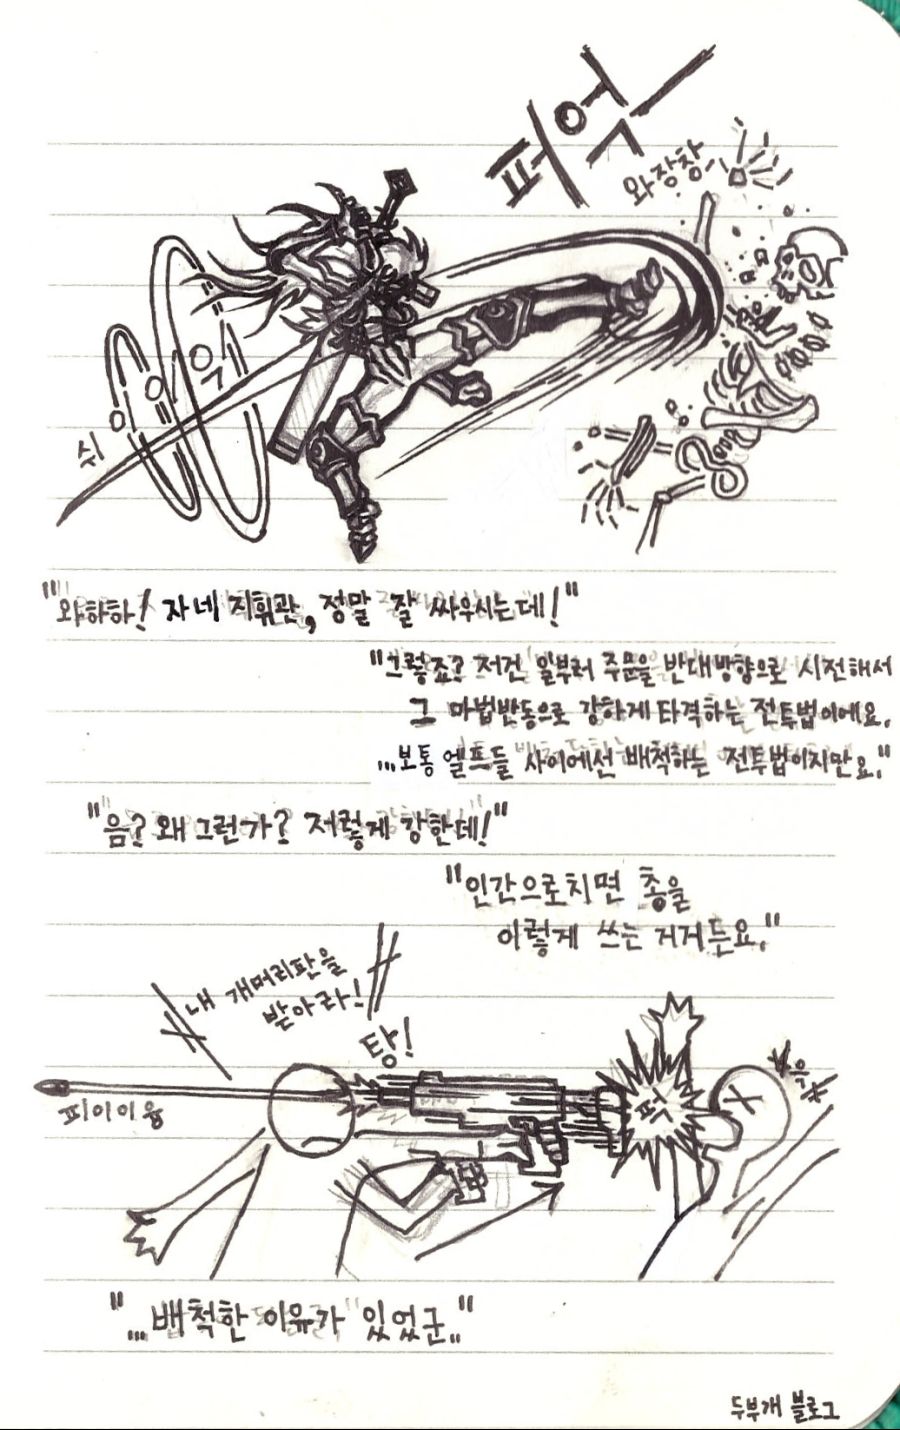 퍼억
와장창
쉬이익
"와하하! 자네 지휘관, 정말 잘 싸우시는데!"
"그렇죠? 저건 일부러 주문을 반대방향으로 시전해서
그 마법반동으로 강하게 타격하는 전투법이에요.
...보통 엘프들 사이에선 배척하는 전투법이지만요."
"음? 왜 그런가? 저렇게 강한데!"
"인간으로치면 총을
이렇게 쓰는 거거든요."
내 개머리판을
받아라!
탕!
피이이융
퍽
윽
"...배척한 이유가 있었군.."
두부개 블로그